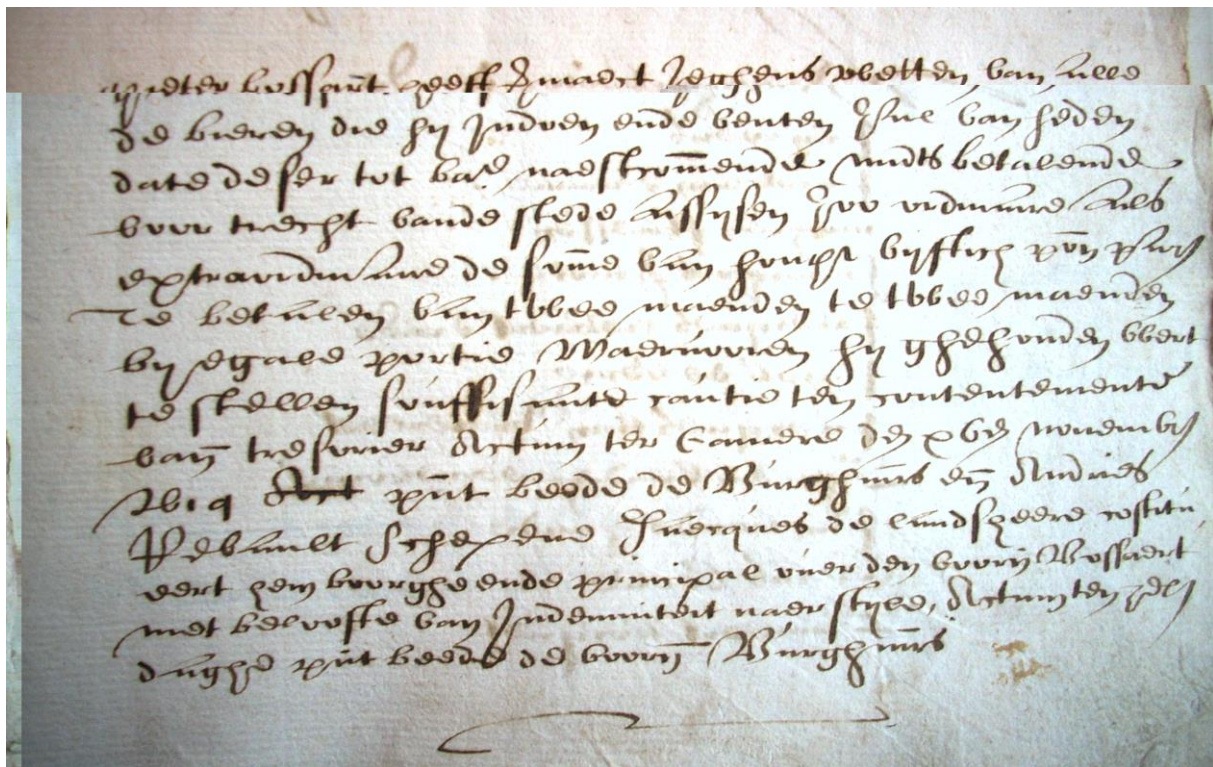 pieter bossaert heeft ghemaect jeghens wetten van alle
de bieren die hy Indoen ende venten sal van heden
date deser tot bae naestcommende mids betalende
voor trecht vande stede assysen soo ordinaire als
extraordinaire de somme van vyftich pon par
Te betalen van twee maenden te twee maenden
by egale portie Waervooren hy ghehouden wert
te stellen souffisante cautie ten contentemente
van tresorier Actum ter Camere den xven novemb
pnt beede de Burghmrs en Andries
schepene Jacques de landsheere costitu
eert hem borghe ende principal over den voorn Bossaert
met belofte van Indemniteit naer style, Actum ten
daghe pnt beede de voorn Burghmrs